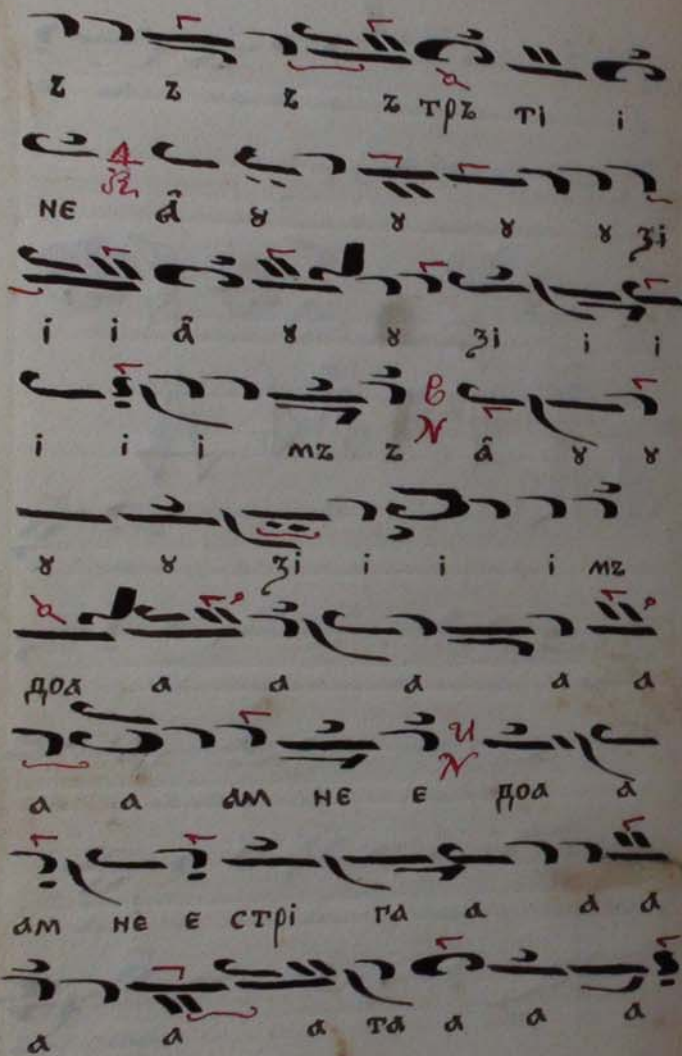 ꙁ ꙁ ꙁ ꙁ трꙁ ті і
не а̑ ꙋ ꙋ ꙋ ꙋ зі
і і а̑ ꙋ ꙋ зі і і
і і і мꙁ ꙁ а̑ ꙋ ꙋ
ꙋ ꙋ зі і і і мꙁ
доа а а а а а
а а ам не е доа а
ам не е стрі га а а а
а а а та а а а